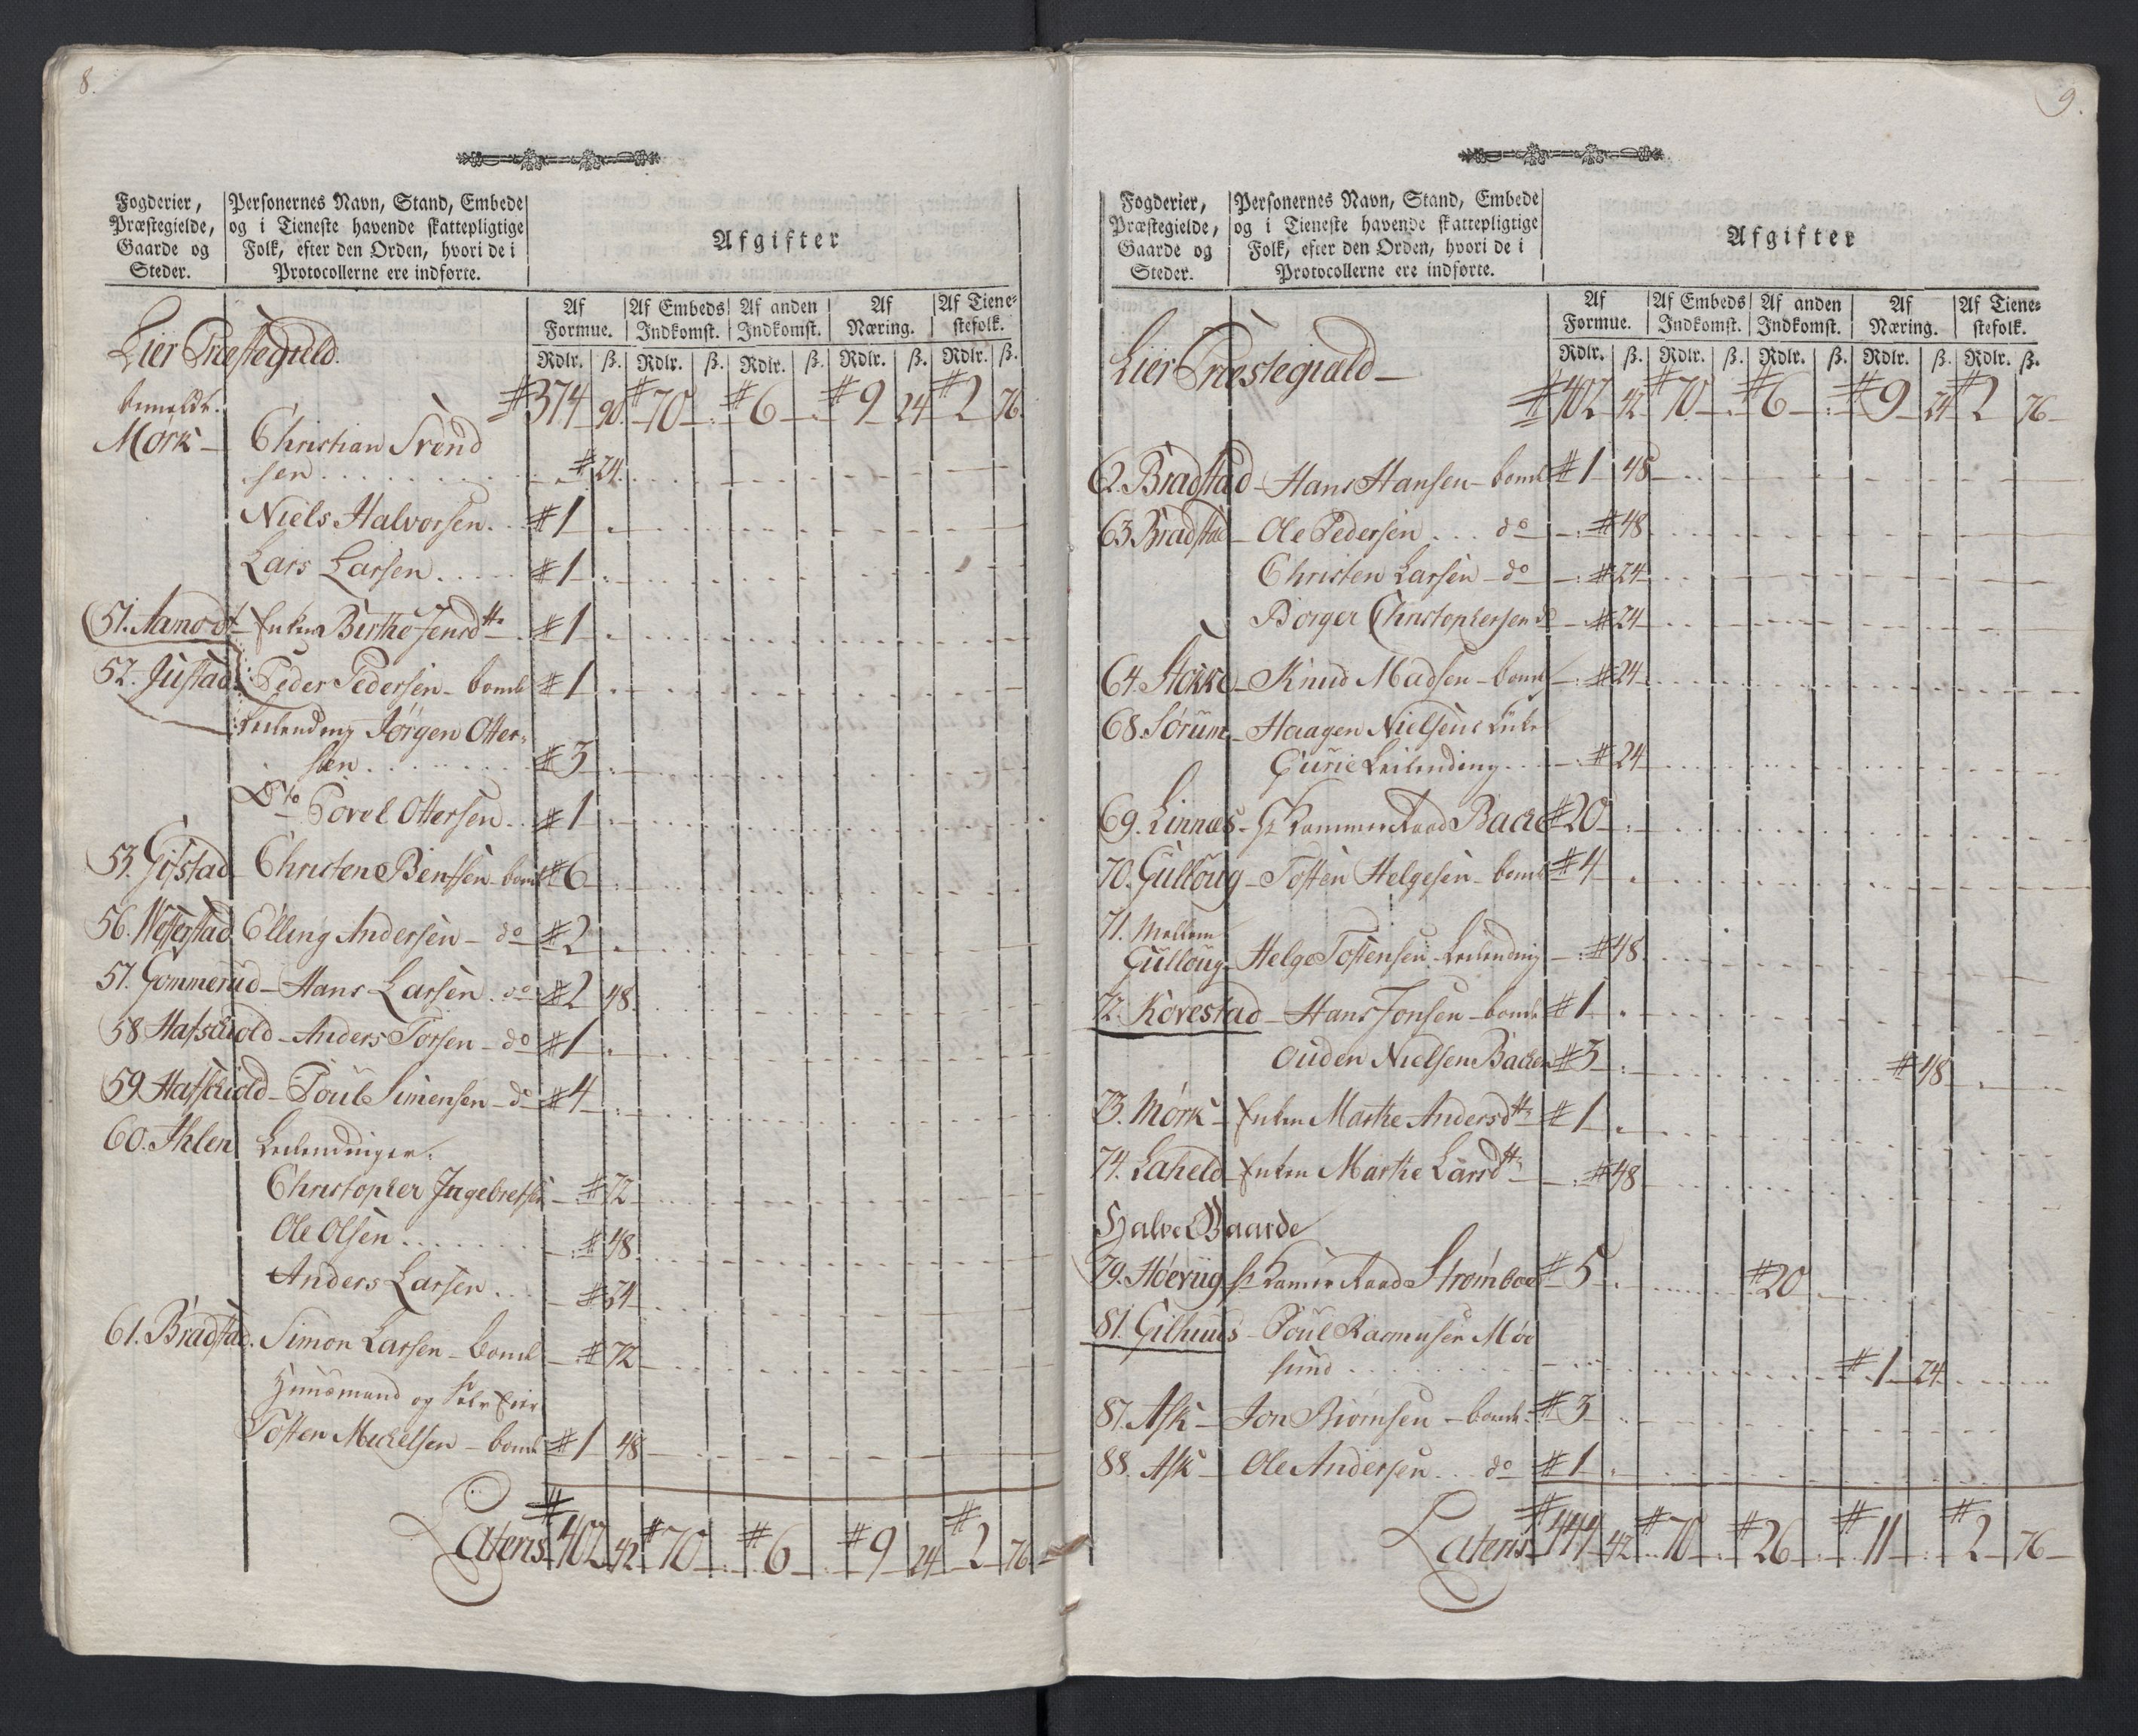 8.
Fogderier,
Præstegielde,
Gaarde og
Steder.
Personernes Navn, Stand, Embede
og i Tieneste havende skattepligtige
Folk, efter den Orden, hvori de i
Protocollerne ere indførte.
Afgifter
Af Formue. Af Embeds Indkomst. Af anden Indkomst. Af Næring. Af Tiene-stefolk.
Rdlr. ß. Rdlr. ß. Rdlr. ß. Rdlr. ß. Rdlr. ß.
Lier Præstegield.
#374 90. #70 #6 #9 24 #2 76
Mørk Christian Svend
sen # 24.
Niels Halvorsen #1
Lars Larsen #1
51. Aamodt Enken Birthe Jensdtr #1
52. Justad Peder Pedersen bomldt #1
Leilending Jörgen Otter-
sen #3
Dto Povel Ottersen #1
53. Gifstad Christen Bentsen boml #6
56. Wefferstad Elling Andersen do #2
57. Gommerud Hans Larsen do #2 48.
58 Hafschiold Anders Torsen do #1
59 Hafschiold Poul Simensen do #4
60. Ihlen Leilendinger.
Christopher Ingebretsen #72
Ole Olsen #48
Anders Larsen #24
61. Bradstad. Simon Larsen boml #72
Huusmand og Selv Eier
Tosten Mickelsen boml #1 48
Lateris #402 42 #70 #6 #9 24 #2 76
9.
Fogderier,
Præstegielde,
Gaarde og
Steder.
Personernes Navn, Stand, Embede
og i Tieneste havende skattepligtige
Folk, efter den Orden, hvori de i
Protocollerne ere indførte.
Afgifter
Af Formue. Af Embeds Indkomst. Af anden Indkomst. Af Næring. Af Tiene-stefolk.
Rdlr. ß. Rdlr. ß. Rdlr. ß. Rdlr. ß. Rdlr. ß.
Lier Præstegiald
#402 42 #70 #6 #9 24 #2 76
62. Bradstad Hans Hansen boml #1 48
63 Bradstad Ole Pedersen do #48
Christen Larsen do #24
Borger Christophersen do #24
64. Stokke Knud Madsen boml #24
68. Sørum Haagen Nielsens Enke
Gurie Leilending #24
69. Linnæs Hr Kammer Raad Backe #20
70. Gulloug Tosten Helgesen boml #4
71. Mellem
Gulloug Helge Tostensen Leilending #48
72. Kovestad Hans Jonsen boml #1
Ouden Nielsen Backen #3 #48
73. Mørk Enken Marthe Andersdtr #1
74. Laheld Enken Marthe Larsdtr #48
Halve Gaarde
79. Höevüg Hr Kamer Raad Strömboe #5 #20
81. Gilhuus Poul Rasmusen Möe
sund #1 24
87. Ask Jon Biörnsen boml. #3
88. Ask Ole Andersen do #1
Lateris #444 42 #70 #26 #11 #2 76